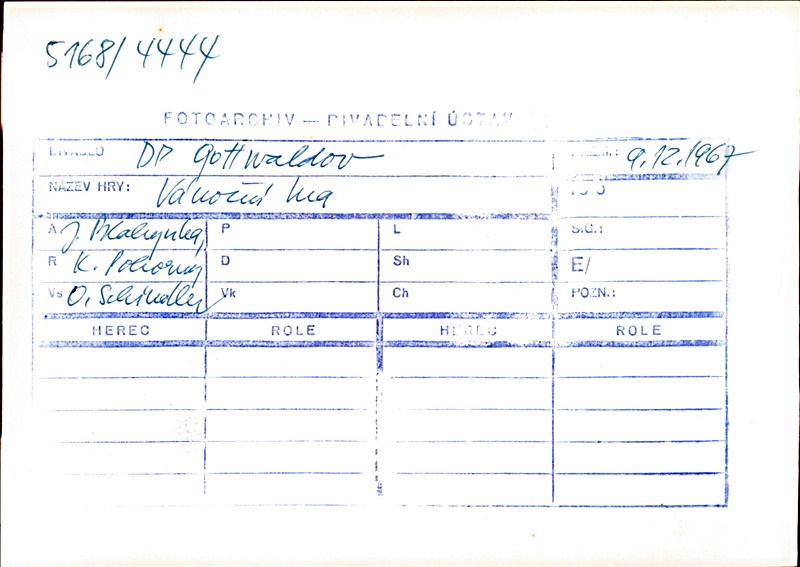 5168/4444
FOTOARCHIV — DIVADELNÍ ÚSTAV
DIVADLO DP Gottwaldov PREM.: 9.12.1967
NÁZEV HRY: Vánoční hra FOTO
A J. Pkalynka, P L SIG.:
R K. Pokorný D Sh E/
Vs O. Schindler Vk Ch POZN.:
HEREC ROLE HEREC ROLE